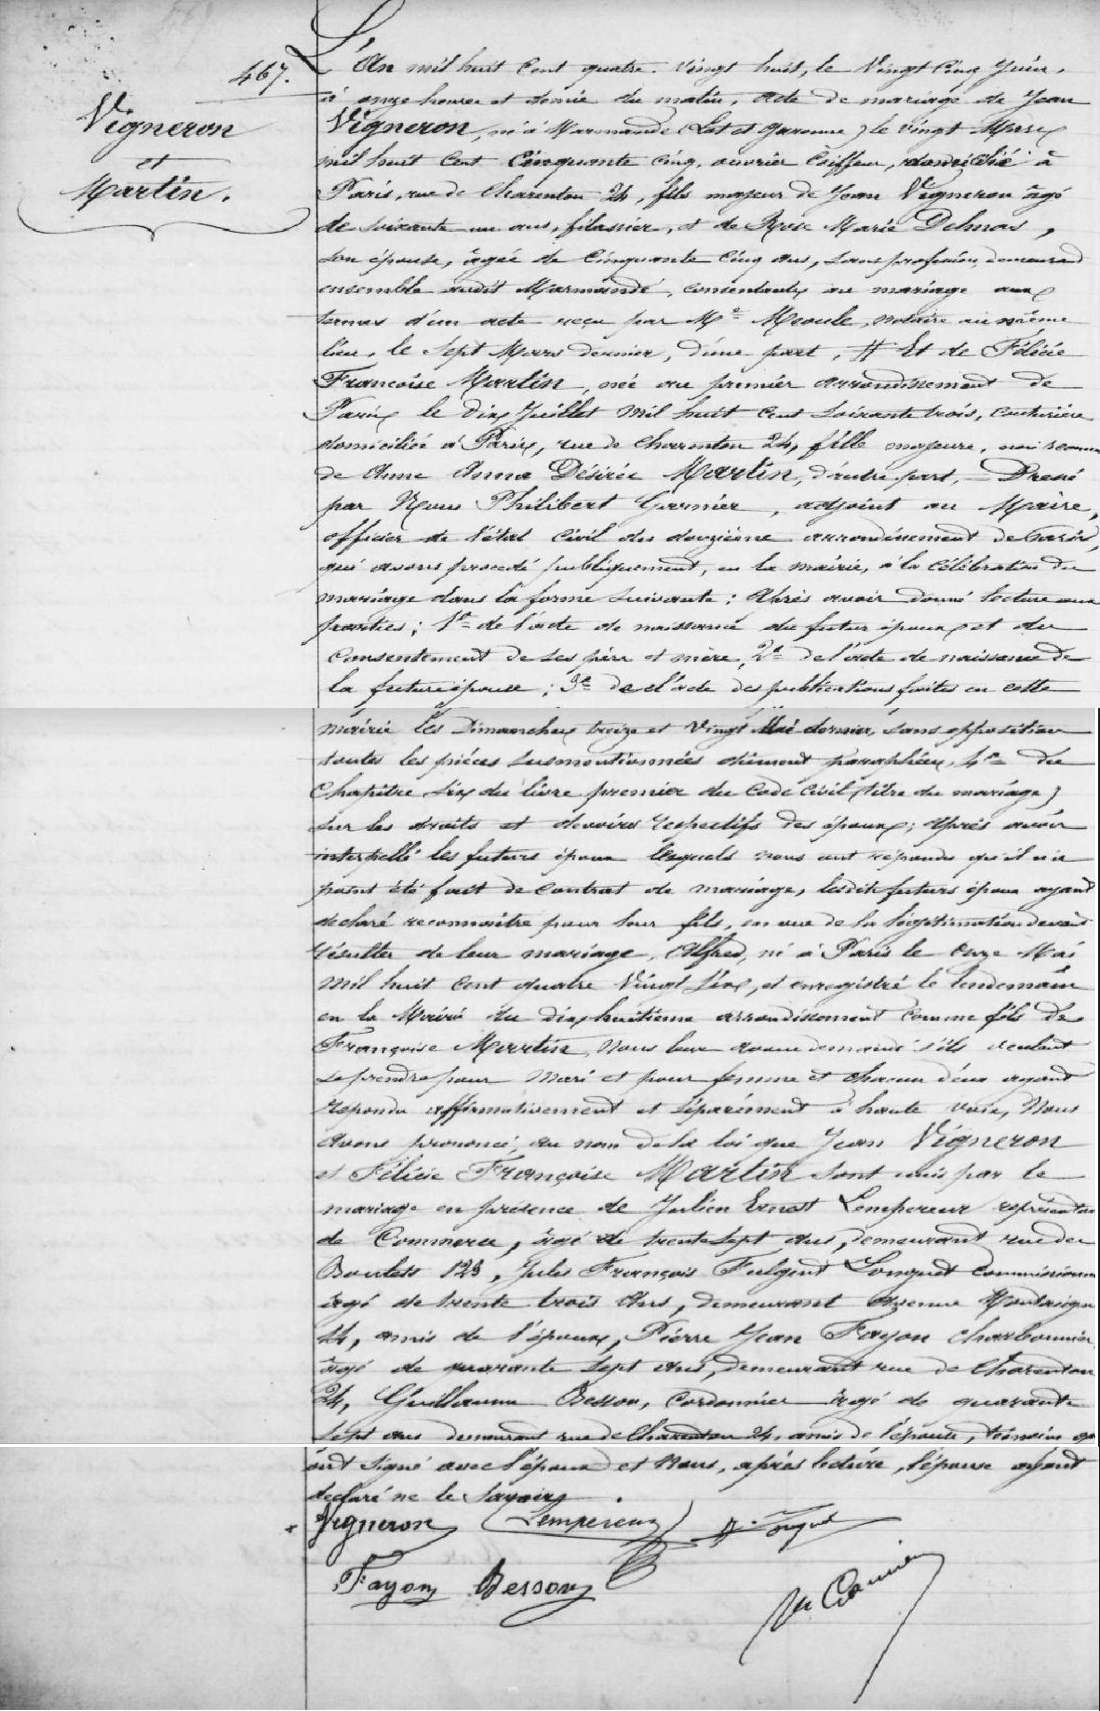 467.
Vigneron
et
Martin.
L'An mil huit cent quatre-vingt huit, le Vingt Cinq Juin,
à onze heures et demie du matin, acte de mariage de Jean
Vigneron, né à Marmande (Lot et Garonne) le vingt Mars
mil huit cent cinquante cinq, ouvrier Coiffeur, domicilié à
Paris, rue de Charenton 24, fils majeur de Jean Vigneron âgé
de soixante un ans, filassier, et de Rose Marie Delmas,
son épouse, âgée de cinquante cinq ans, sans profession, demeurant
ensemble audit Marmande, consentants au mariage aux
termes d'un acte reçu par Me Moule, notaire au même
lieu, le sept Mars dernier, d'une part, # Et de Félicie
Françoise Martin, née au premier arrondissement de
Paris le dix Juillet mil huit cent soixante trois, couturière
domiciliée à Paris, rue de Charenton 24, fille majeure, non reconnue
de Anne Anna Désirée Martin, d'autre part, — Dressé
par Nous Philibert Garnier, adjoint au Maire,
officier de l'état civil du douzième arrondissement de Paris,
qui avons procédé publiquement, en la mairie, à la célébration du
mariage dans la forme suivante : Après avoir donné lecture aux
parties ; 1° de l'acte de naissance du futur époux et du
consentement de ses père et mère, 2° de l'acte de naissance de
la future épouse ; 3° de l'acte des publications faites en cette
mairie les Dimanches treize et vingt Mai dernier, sans opposition
toutes les pièces susmentionnées dûment paraphées, 4° du
Chapitre six du livre premier du Code Civil (titre du mariage)
sur les droits et devoirs respectifs des époux ; après avoir
interpellé les futurs époux lesquels nous ont répondu qu'il n'a
point été fait de contrat de mariage, lesdits futurs époux ayant
déclaré reconnaître pour leur fils, en vue de la légitimation devant
résulter de leur mariage, Alfred, né à Paris le onze Mai
mil huit cent quatre Vingt six, et enregistré le lendemain
en la Mairie du dix huitième arrondissement comme fils de
Françoise Martin, Nous leur avons demandé s'ils veulent
se prendre pour mari et pour femme et chacun d'eux ayant
répondu affirmativement et séparément à haute voix, Nous
avons prononcé au nom de la loi que Jean Vigneron
et Félicie Françoise Martin sont unis par le
mariage en présence de Julien Ernest Lempereur représentant
de Commerce, âgé de trente sept ans, demeurant rue des
Boulets 123, Jules François Fulgent Longuet commissionnaire
âgé de trente trois ans, demeurant avenue Montaigne
24, amis de l'époux, Pierre Jean Fayon charbonnier,
âgé de quarante sept ans, demeurant rue de Charenton
24, Guillaume Besson, cordonnier âgé de quarante
sept ans demeurant rue de Charenton 24, amis de l'épouse, témoins qui
ont signé avec l'époux et Nous, après lecture, l'épouse ayant
déclaré ne le savoir.
Vigneron Lempereur
Fayon Besson